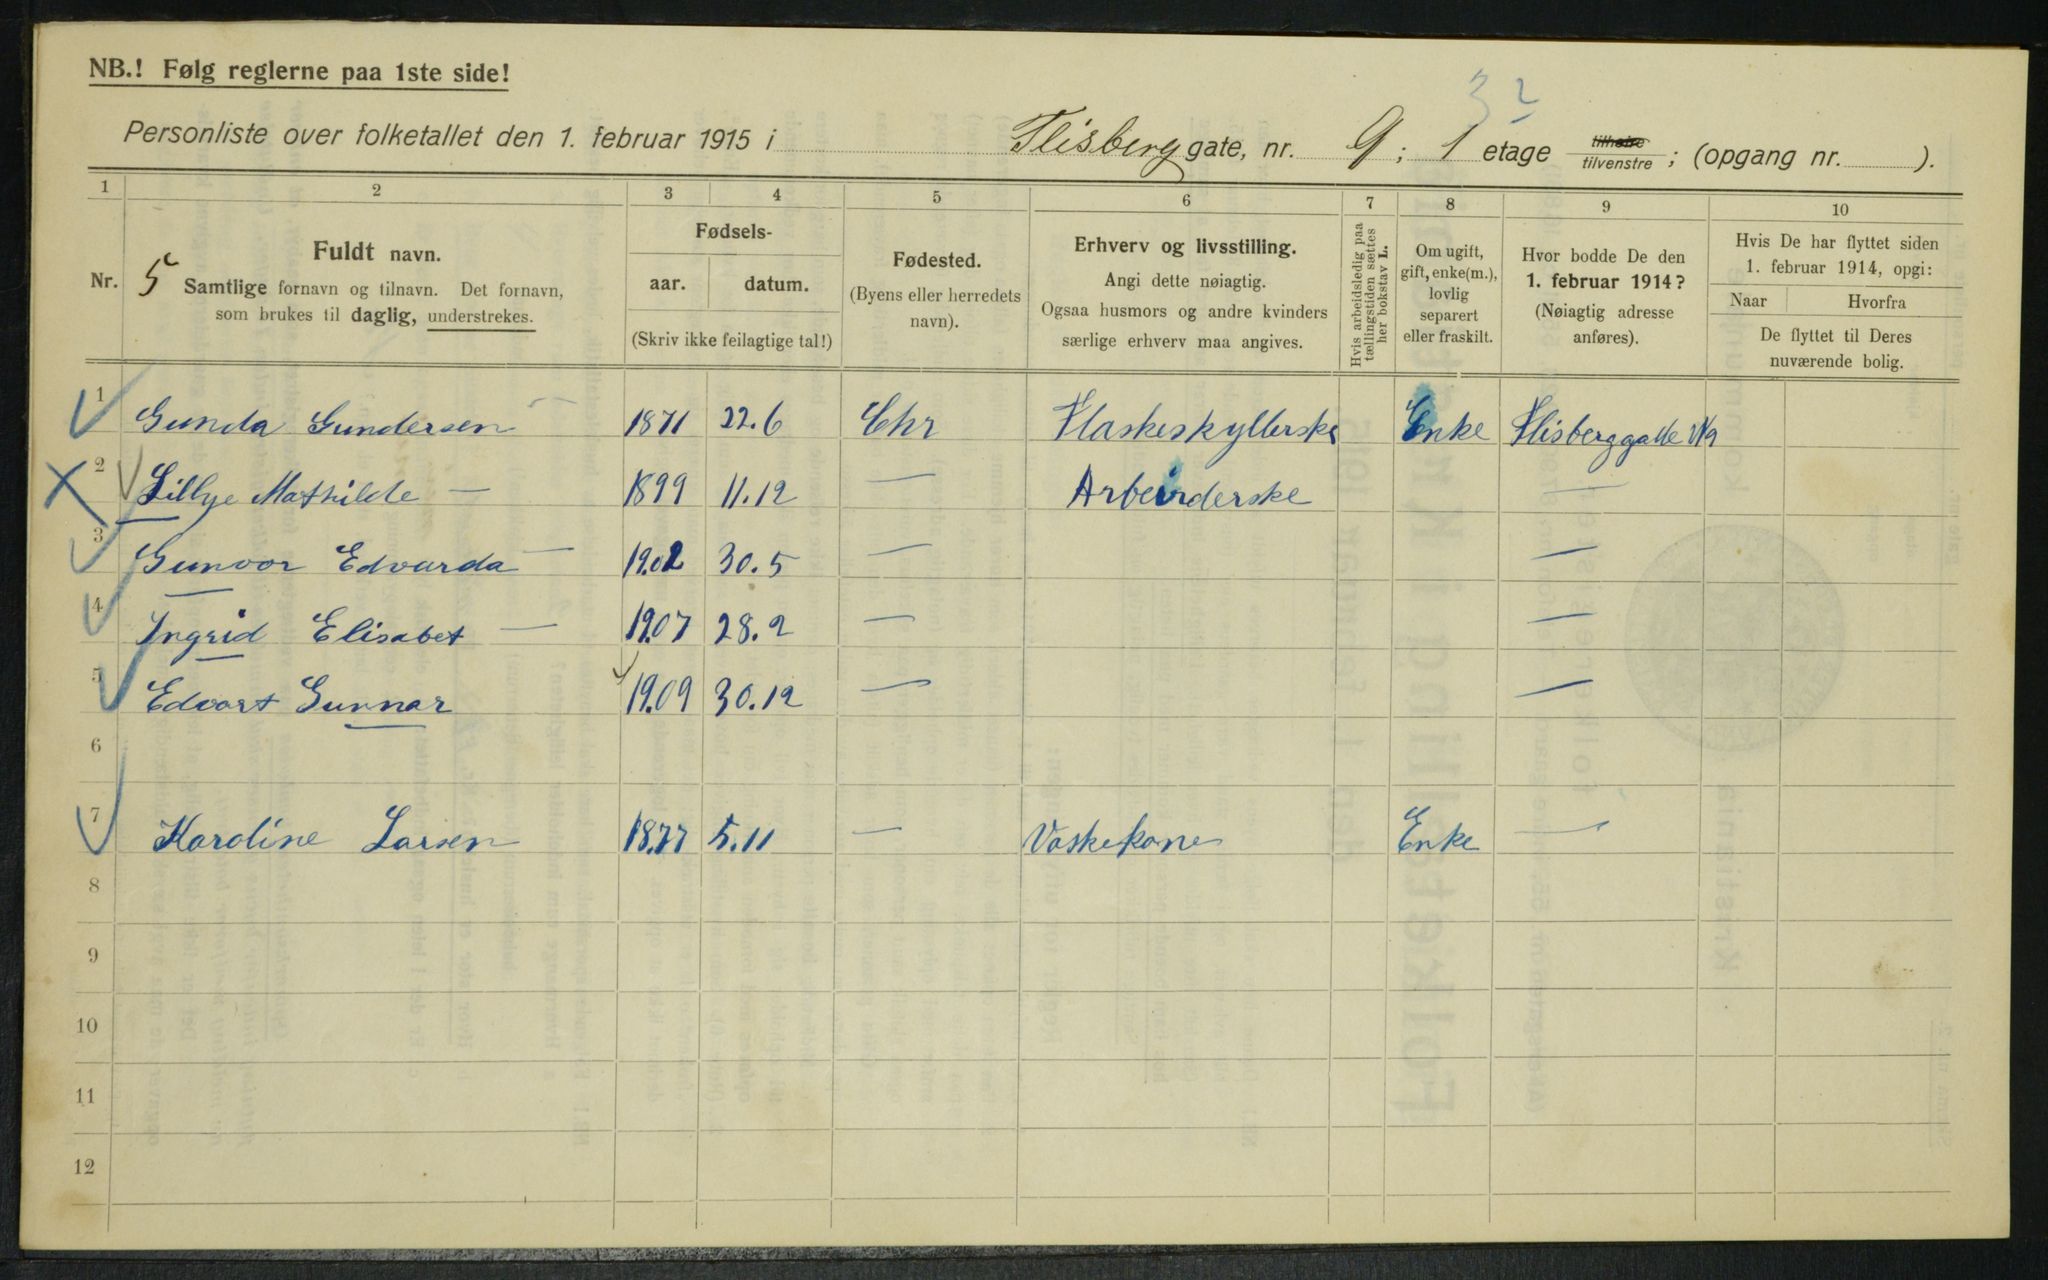 NB.! Følg reglerne paa 1ste side!
32
Personliste over folketallet den 1. februar 1915 i Flisberg gate, nr. 9; 1 etage tilhøire tilvenstre; (opgang nr. ).
1 2 3 4 5 6 7 8 9 10
Nr. 5
Fuldt navn.
Samtlige fornavn og tilnavn. Det fornavn,
som brukes til daglig, understrekes.
Fødsels-
aar. datum.
(Skriv ikke feilagtige tal!)
Fødested.
(Byens eller herredets
navn).
Erhverv og livsstilling.
Angi dette nøiagtig.
Ogsaa husmors og andre kvinders
særlige erhverv maa angives.
Hvis arbeidsledig paa
tællingstiden sættes
her bokstav L.
Om ugift,
gift, enke(m.),
lovlig
separert
eller fraskilt.
Hvor bodde De den
1. februar 1914?
(Nøiagtig adresse
anføres).
Hvis De har flyttet siden
1. februar 1914, opgi:
Naar Hvorfra
De flyttet til Deres
nuværende bolig.
1 Gunda Gundersen 1871 22.6 Chr Flaskeskyllerske Enke Flisberggade N 9
2 Lillye Mathilde — 1899 11.12 — Arbeiderske —
3 Gunvor Edvarda — 19.02 30.5 — —
4 Ingrid Elisabet — 19.07 28.2 — —
5 Edvart Gunnar 19.09 30.12 — —
6
7 Karoline Larsen 18.77 5.11 — Vaskekone Enke —
8
9
10
11
12